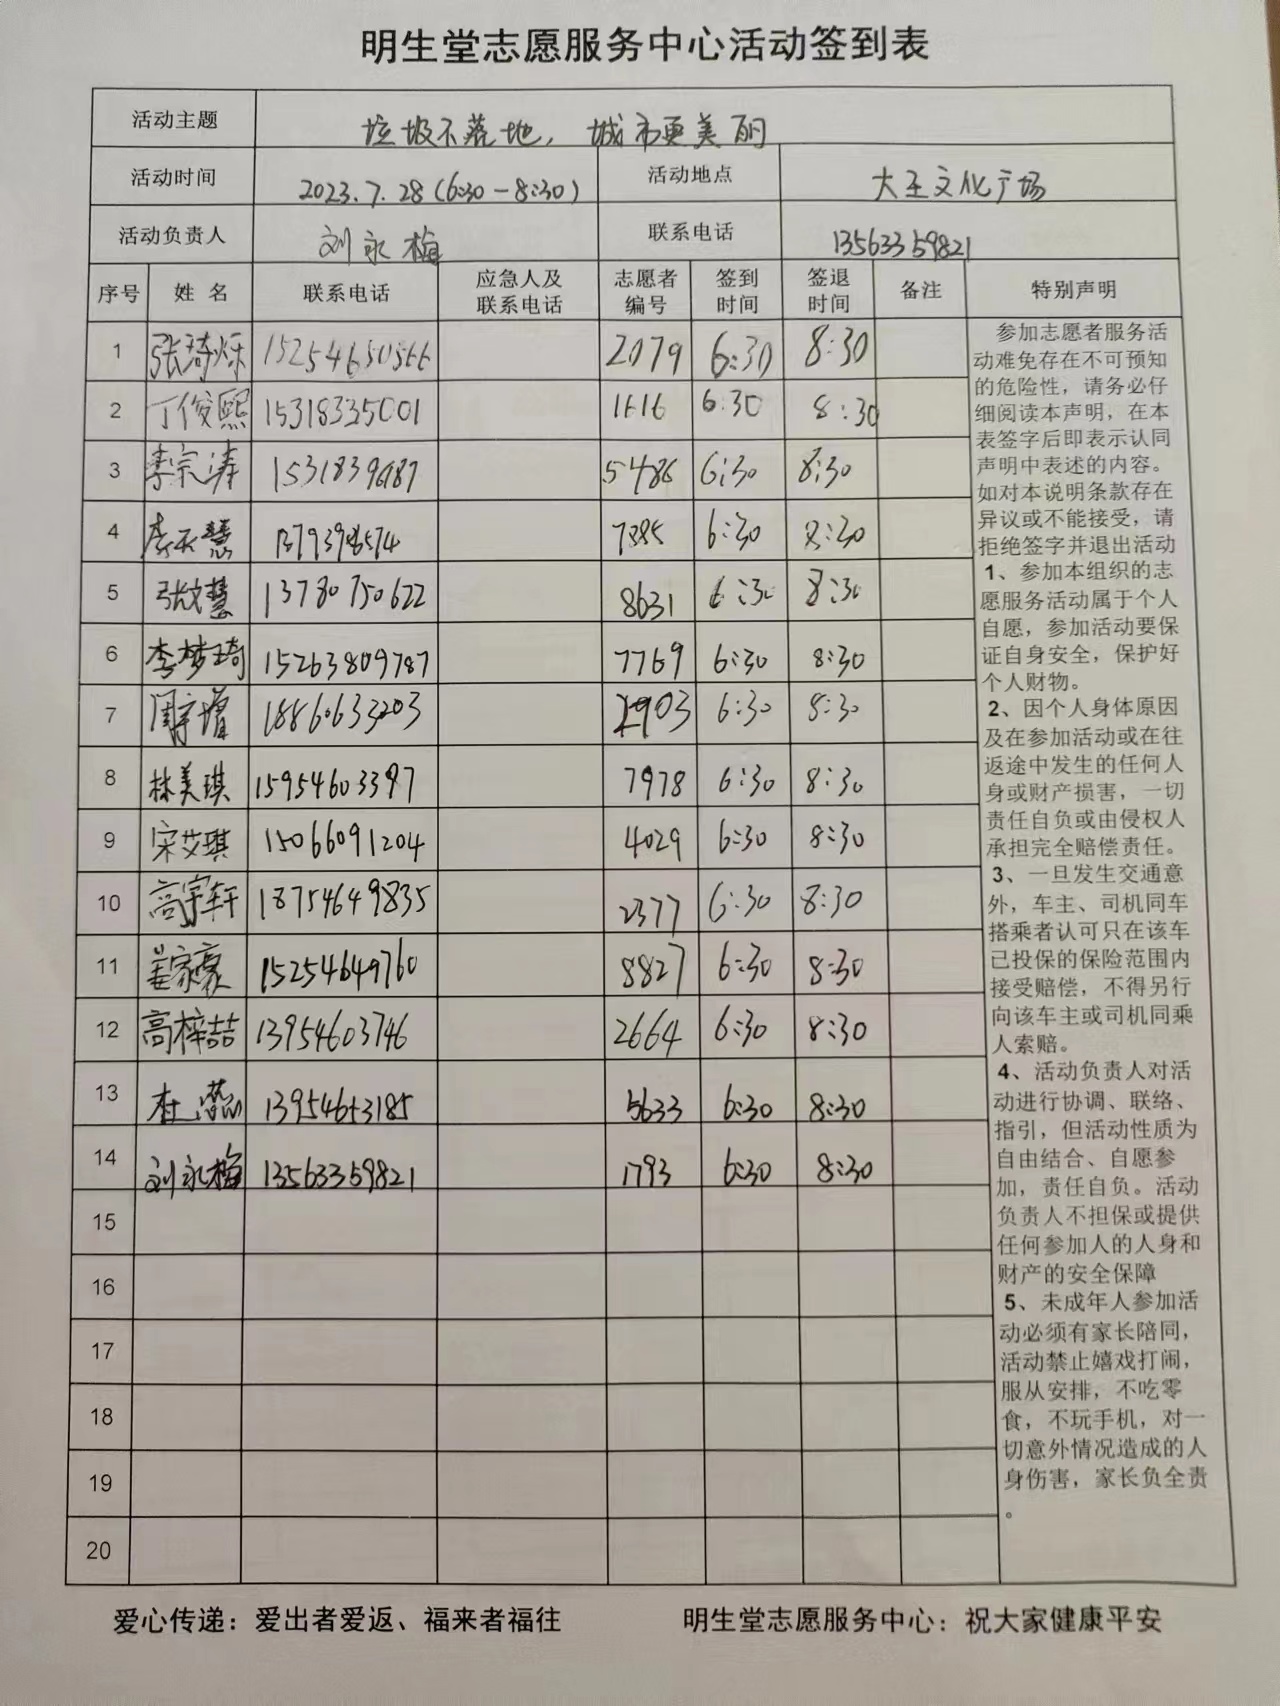 明生堂志愿服务中心活动签到表
活动主题 垃圾不落地，城市更美丽
活动时间 2023.7.28(6:30-8:30) 活动地点 大王文化广场
活动负责人 刘永梅 联系电话 13563359821
序号 姓名 联系电话 应急人及联系电话 志愿者编号 签到时间 签退时间 备注 特别声明
1 张琦烁 15254650566 2079 6:30 8:30
2 丁俊熙 15318335001 1616 6:30 8:30
3 李宗涛 5486 6:30 8:30
4 7385 6:30 8:30
5 张文慧 13780750622 8631 6:30 8:30
6 李梦琦 15263809787 7769 6:30 8:30
7 18860633203 2903 6:30 8:30
8 林美琪 15954603397 7978 6:30 8:30
9 宋艾琪 15066091204 4029 6:30 8:30
10 高宇轩 18754649835 2377 6:30 8:30
11 姜家豪 15254649760 8827 6:30 8:30
12 高梓喆 13954603746 2664 6:30 8:30
13 杜 13954653185 5633 6:30 8:30
14 刘永梅 13563359821 1793 6:30 8:30
15
16
17
18
19
20
参加志愿者服务活
动难免存在不可预知
的危险性，请务必仔
细阅读本声明，在本
表签字后即表示认同
声明中表述的内容。
如对本说明条款存在
异议或不能接受，请
拒绝签字并退出活动
1、参加本组织的志
愿服务活动属于个人
自愿，参加活动要保
证自身安全，保护好
个人财物。
2、因个人身体原因
及在参加活动或在往
返途中发生的任何人
身或财产损害，一切
责任自负或由侵权人
承担完全赔偿责任。
3、一旦发生交通意
外，车主、司机同车
搭乘者认可只在该车
已投保的保险范围内
接受赔偿，不得另行
向该车主或司机同乘
人索赔。
4、活动负责人对活
动进行协调、联络、
指引，但活动性质为
自由结合、自愿参
加，责任自负。活动
负责人不担保或提供
任何参加人的人身和
财产的安全保障
5、未成年人参加活
动必须有家长陪同，
活动禁止嬉戏打闹，
服从安排，不吃零
食，不玩手机，对一
切意外情况造成的人
身伤害，家长负全责
。
爱心传递：爱出者爱返、福来者福往 明生堂志愿服务中心：祝大家健康平安